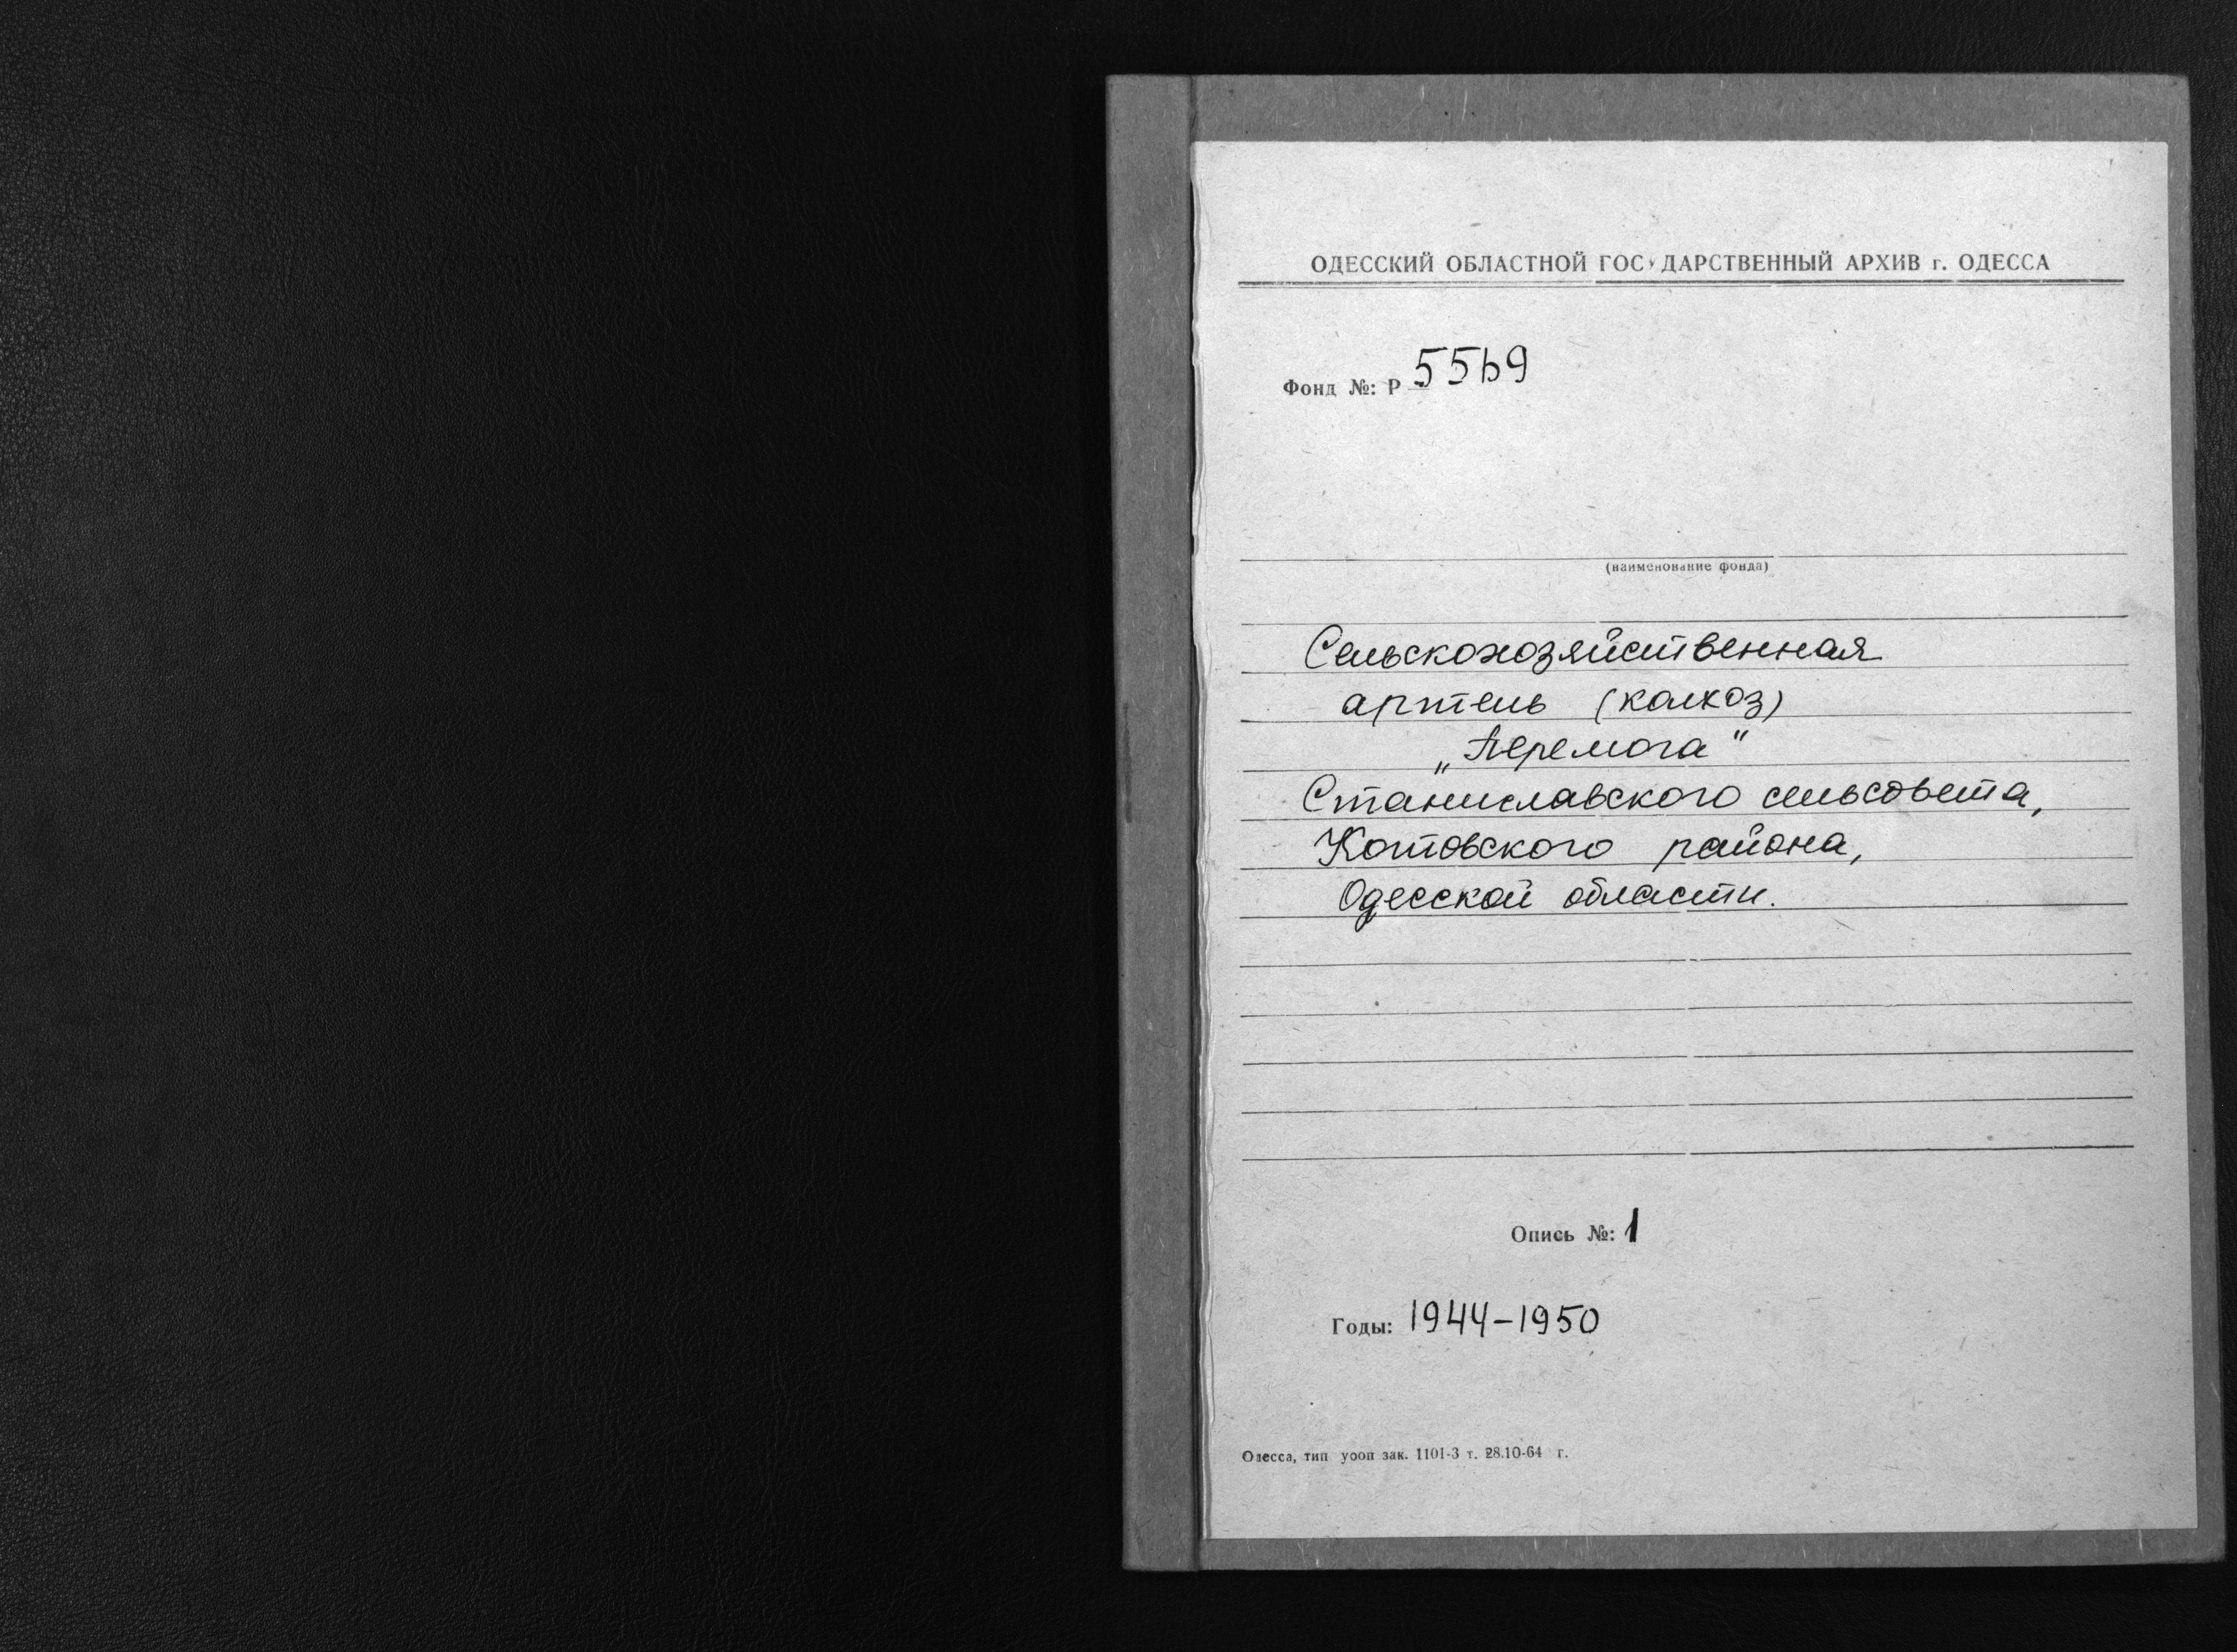 ОДЕССКИЙ ОБЛАСТНОЙ ГОСУДАРСТВЕННЫЙ АРХИВ г. ОДЕССА
Фонд №: Р 5569
(наименование фонда)
Сельскохозяйственная
артель (колхоз)
„Перемога"
Станиславского сельсовета,
Котовского района,
Одесской области.
Опись №: 1
Годы: 1944-1950
Одесса, тип уооп зак. 1101-3 т. 28.10-64 г.